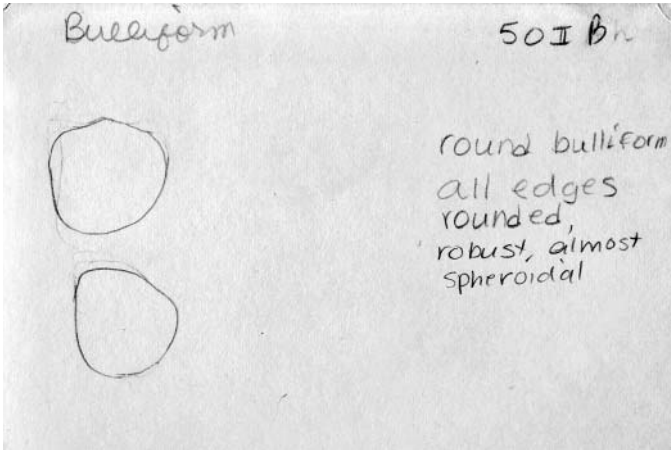 Bulliform
50 II B
round bulliform
all edges
rounded,
robust, almost
spheroidal